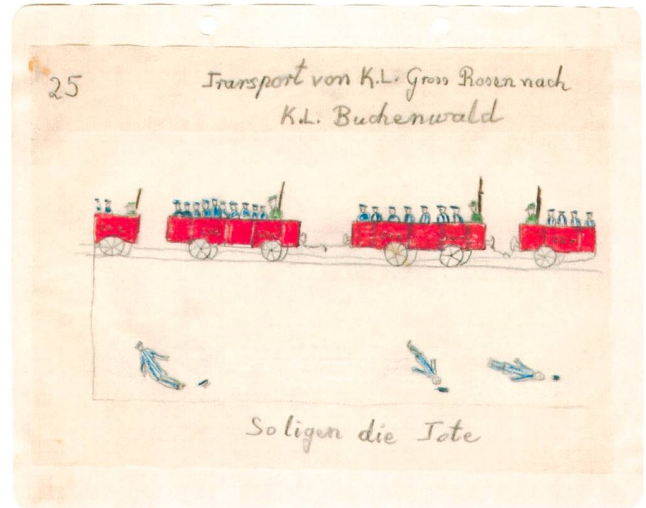 25
Transport von K.L. Gross Rosen nach
K.L. Buchenwald
So ligen die Tote